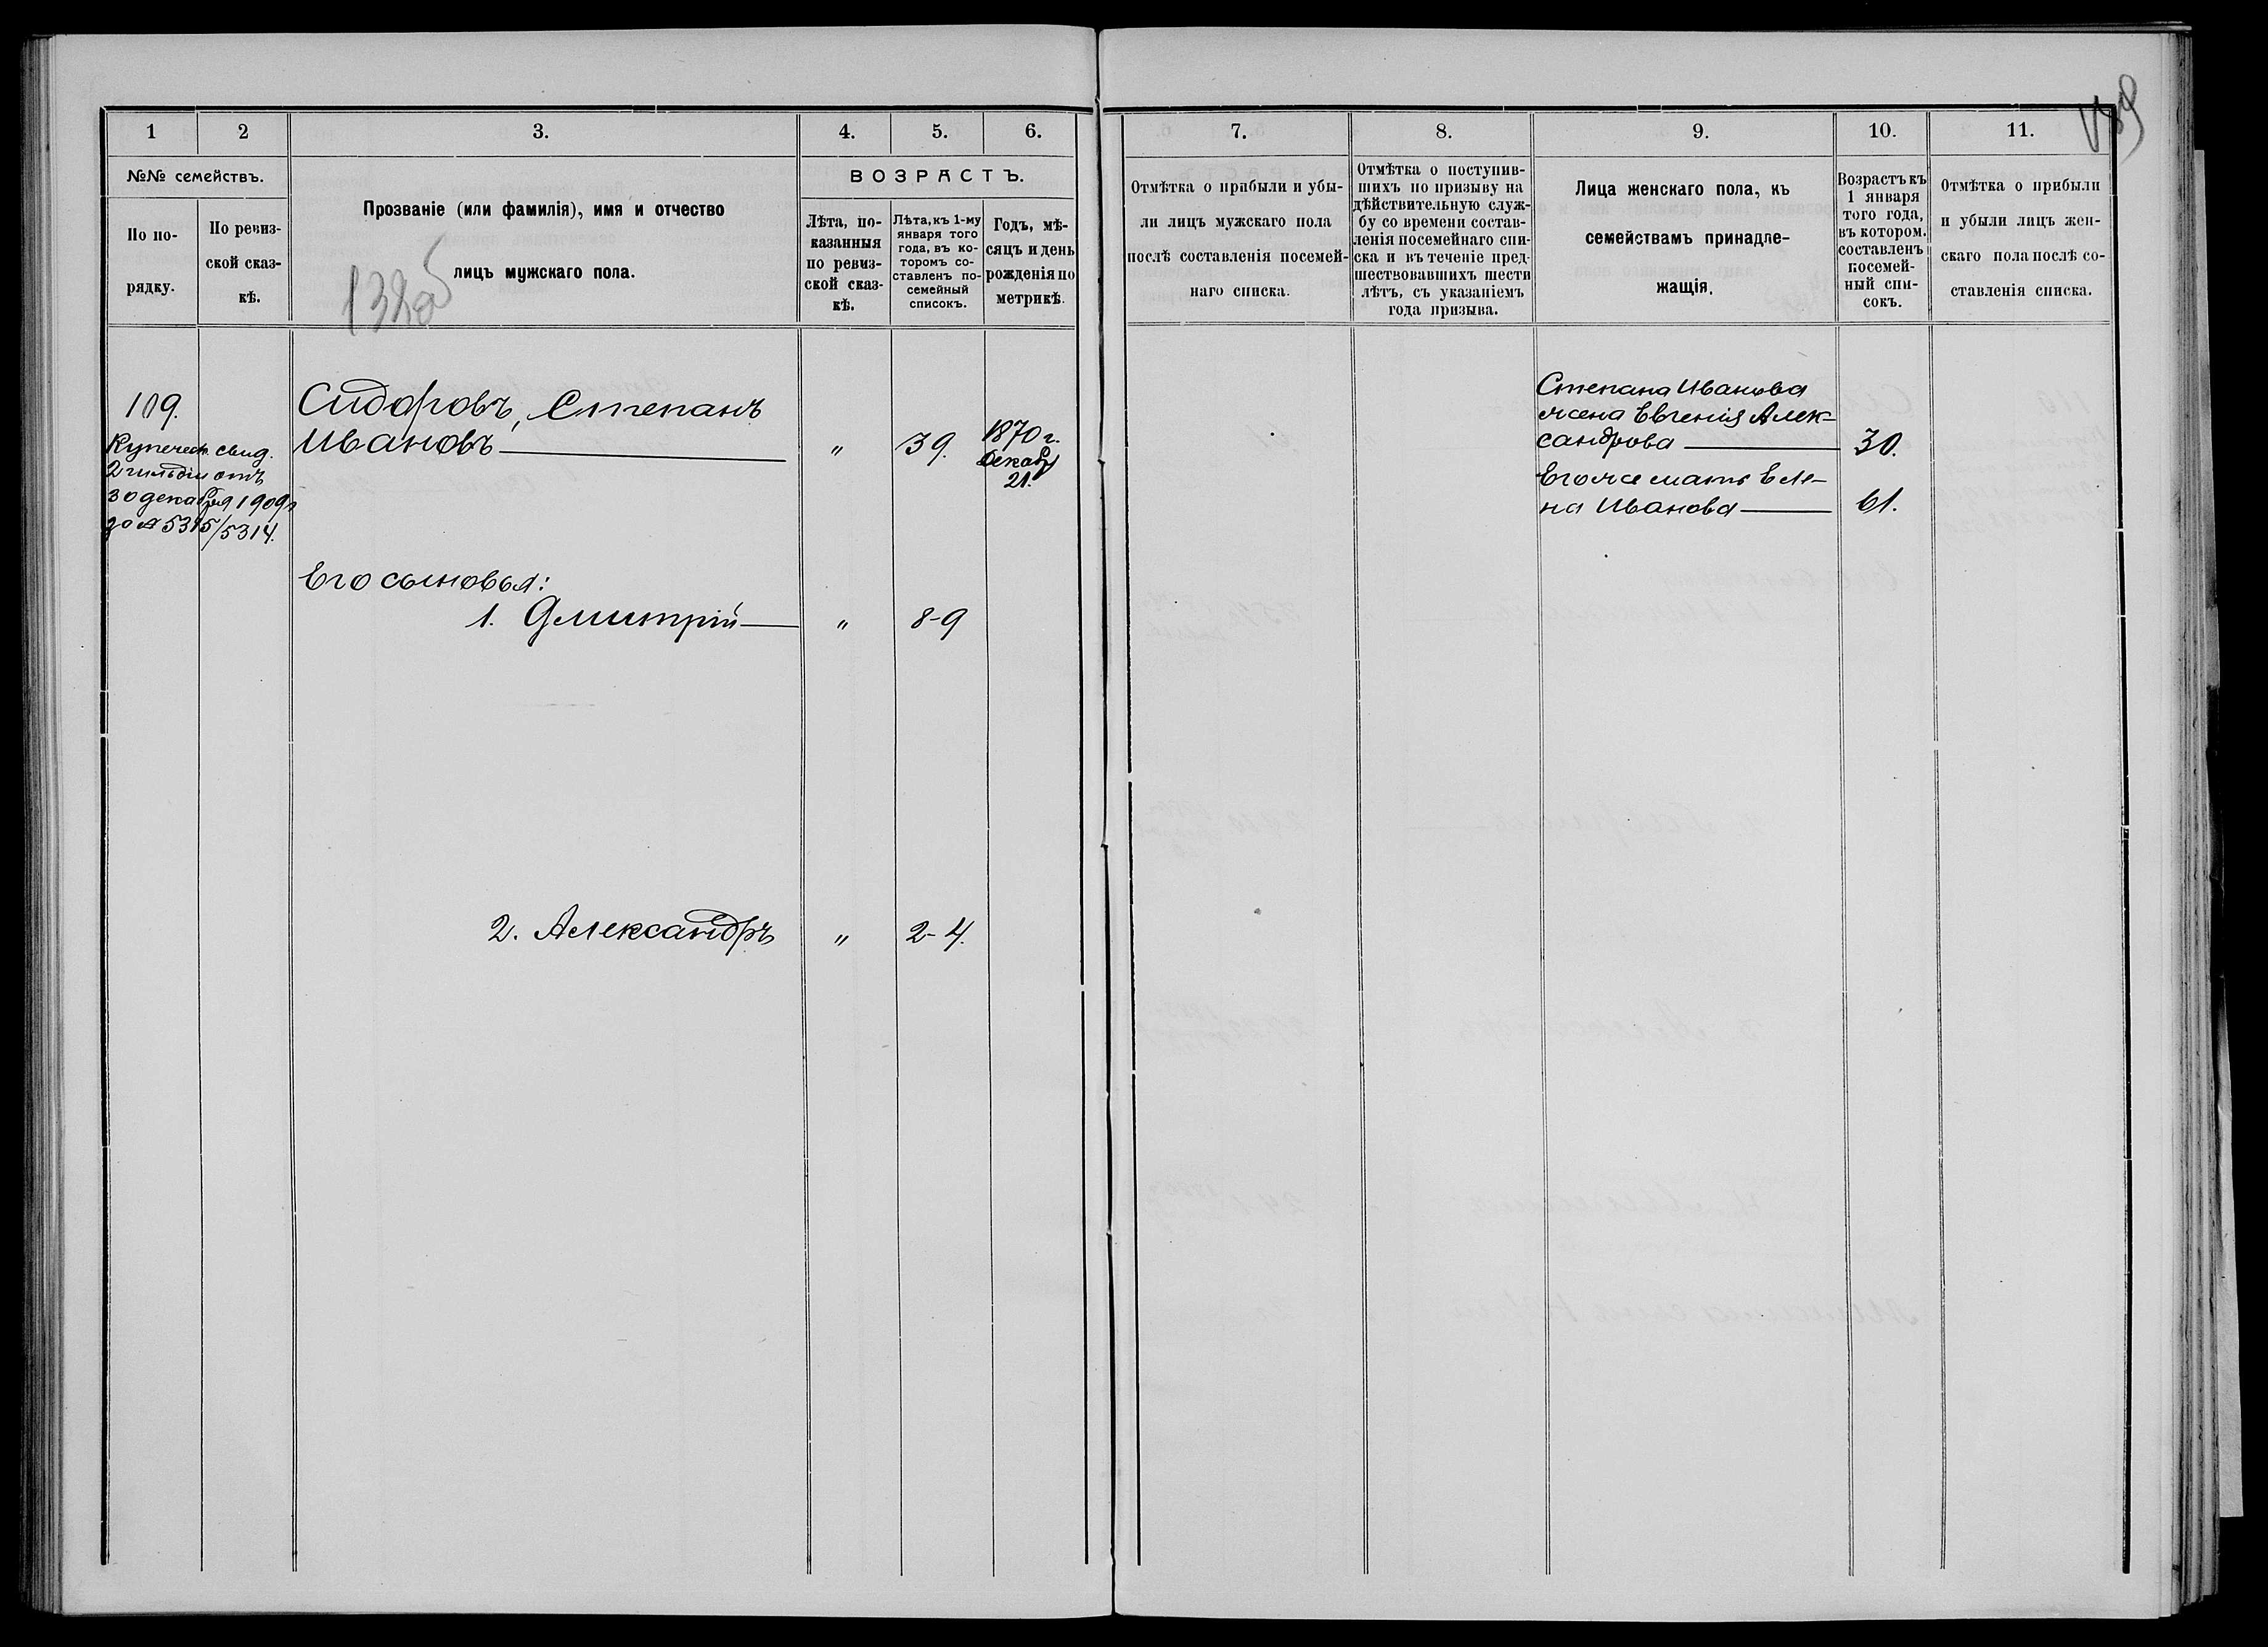 1
2
3.
4.
5.
6.
№№ семействъ.
По по-
рядку.
По ревиз-
ской сказ-
кѣ.
Прозваніе (или фамилія), имя и отчество
лицъ мужскаго пола.
ВОЗРАСТЪ.
Лѣта, по-
казанныя
по ревиз-
ской сказ-
кѣ.
Лѣта, къ 1-му
января того
года, въ ко-
торомъ со-
ставленъ по-
семейный
списокъ.
Годъ, мѣ-
сяцъ и день
рожденія по
метрикѣ.
109.
Купечест. свид.
2 гильдіи отъ
30 декабря 1909 г
за № 5315/5314.
Сидоровъ, Степанъ
Ивановъ
"
39.
1870 г.
декабр
21.
Его сыновья:
1. Дмитрій
"
8-9
2. Александръ
"
2-4.
7.
8.
9.
10.
11.
Отмѣтка о прибыли и убы-
ли лицъ мужскаго пола
послѣ составленія посемей-
наго списка.
Отмѣтка о поступив-
шихъ по призыву на
дѣйствительную служ-
бу со времени состав-
ленія посемейнаго спи-
ска и въ теченіе пред-
шествовавшихъ шести
лѣтъ, съ указаніемъ
года призыва.
Лица женскаго пола, къ
семействамъ принадле-
жащія.
Возрастъ къ
1 января
того года,
въ котором.
составленъ
посемей-
ный спи-
сокъ.
Отмѣтка о прибыли
и убыли лицъ жен-
скаго пола послѣ со-
ставленія списка.
Степана Иванова
жена Евгенія Алек-
сандрова
30.
Его же мать Еле-
на Иванова
61.